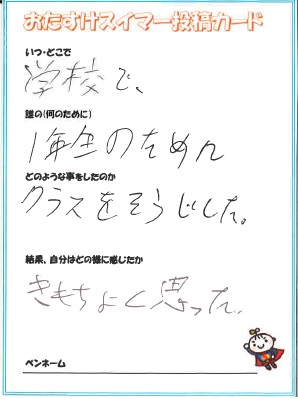 おたすけスイマー投稿カード
いつ・どこで
学校で、
誰の(何のために)
1年生のために
どのような事をしたのか
クラスをそうじした。
結果、自分はどの様に感じたか
きもちよく思った。
ペンネーム